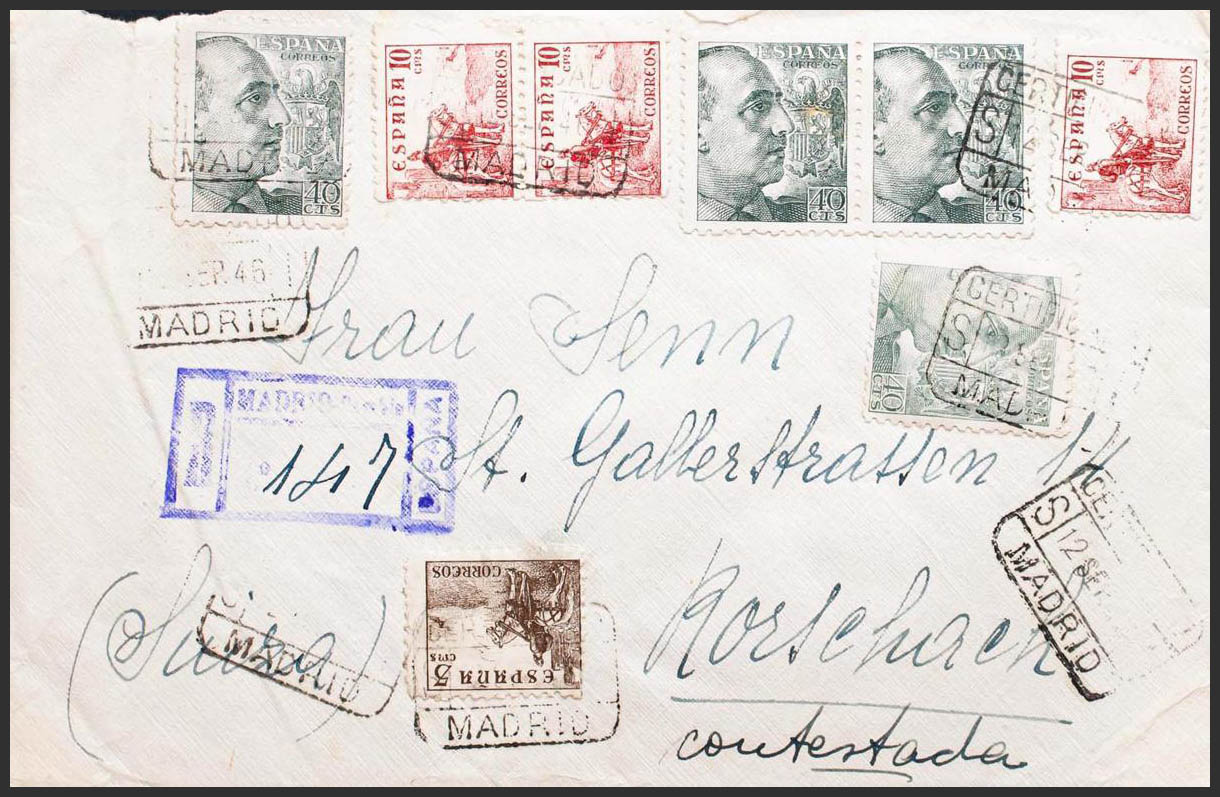 ESPAÑA
CORREOS
40
CTS
MADRID
ESPAÑA 10
CTS
CORREOS
ESPAÑA 10
CTS
CORREOS
MADRID
ESPAÑA
CORREOS
40
CTS
ESPAÑA
CORREOS
40
CTS
ESPAÑA 10
CTS
CORREOS
CERTI
S
MAD
46
MADRID
Frau Senn
ESPAÑA
40
CTS
CERTIFIC
S
MAD
MADRID
ESPAÑA
147
St. Gallerstrassen 14
CER
S
12 SEP
MADRID
Rorschach
(Suiza)
MADRID
CORREOS
ESPAÑA 5
CTS
MADRID
contestada